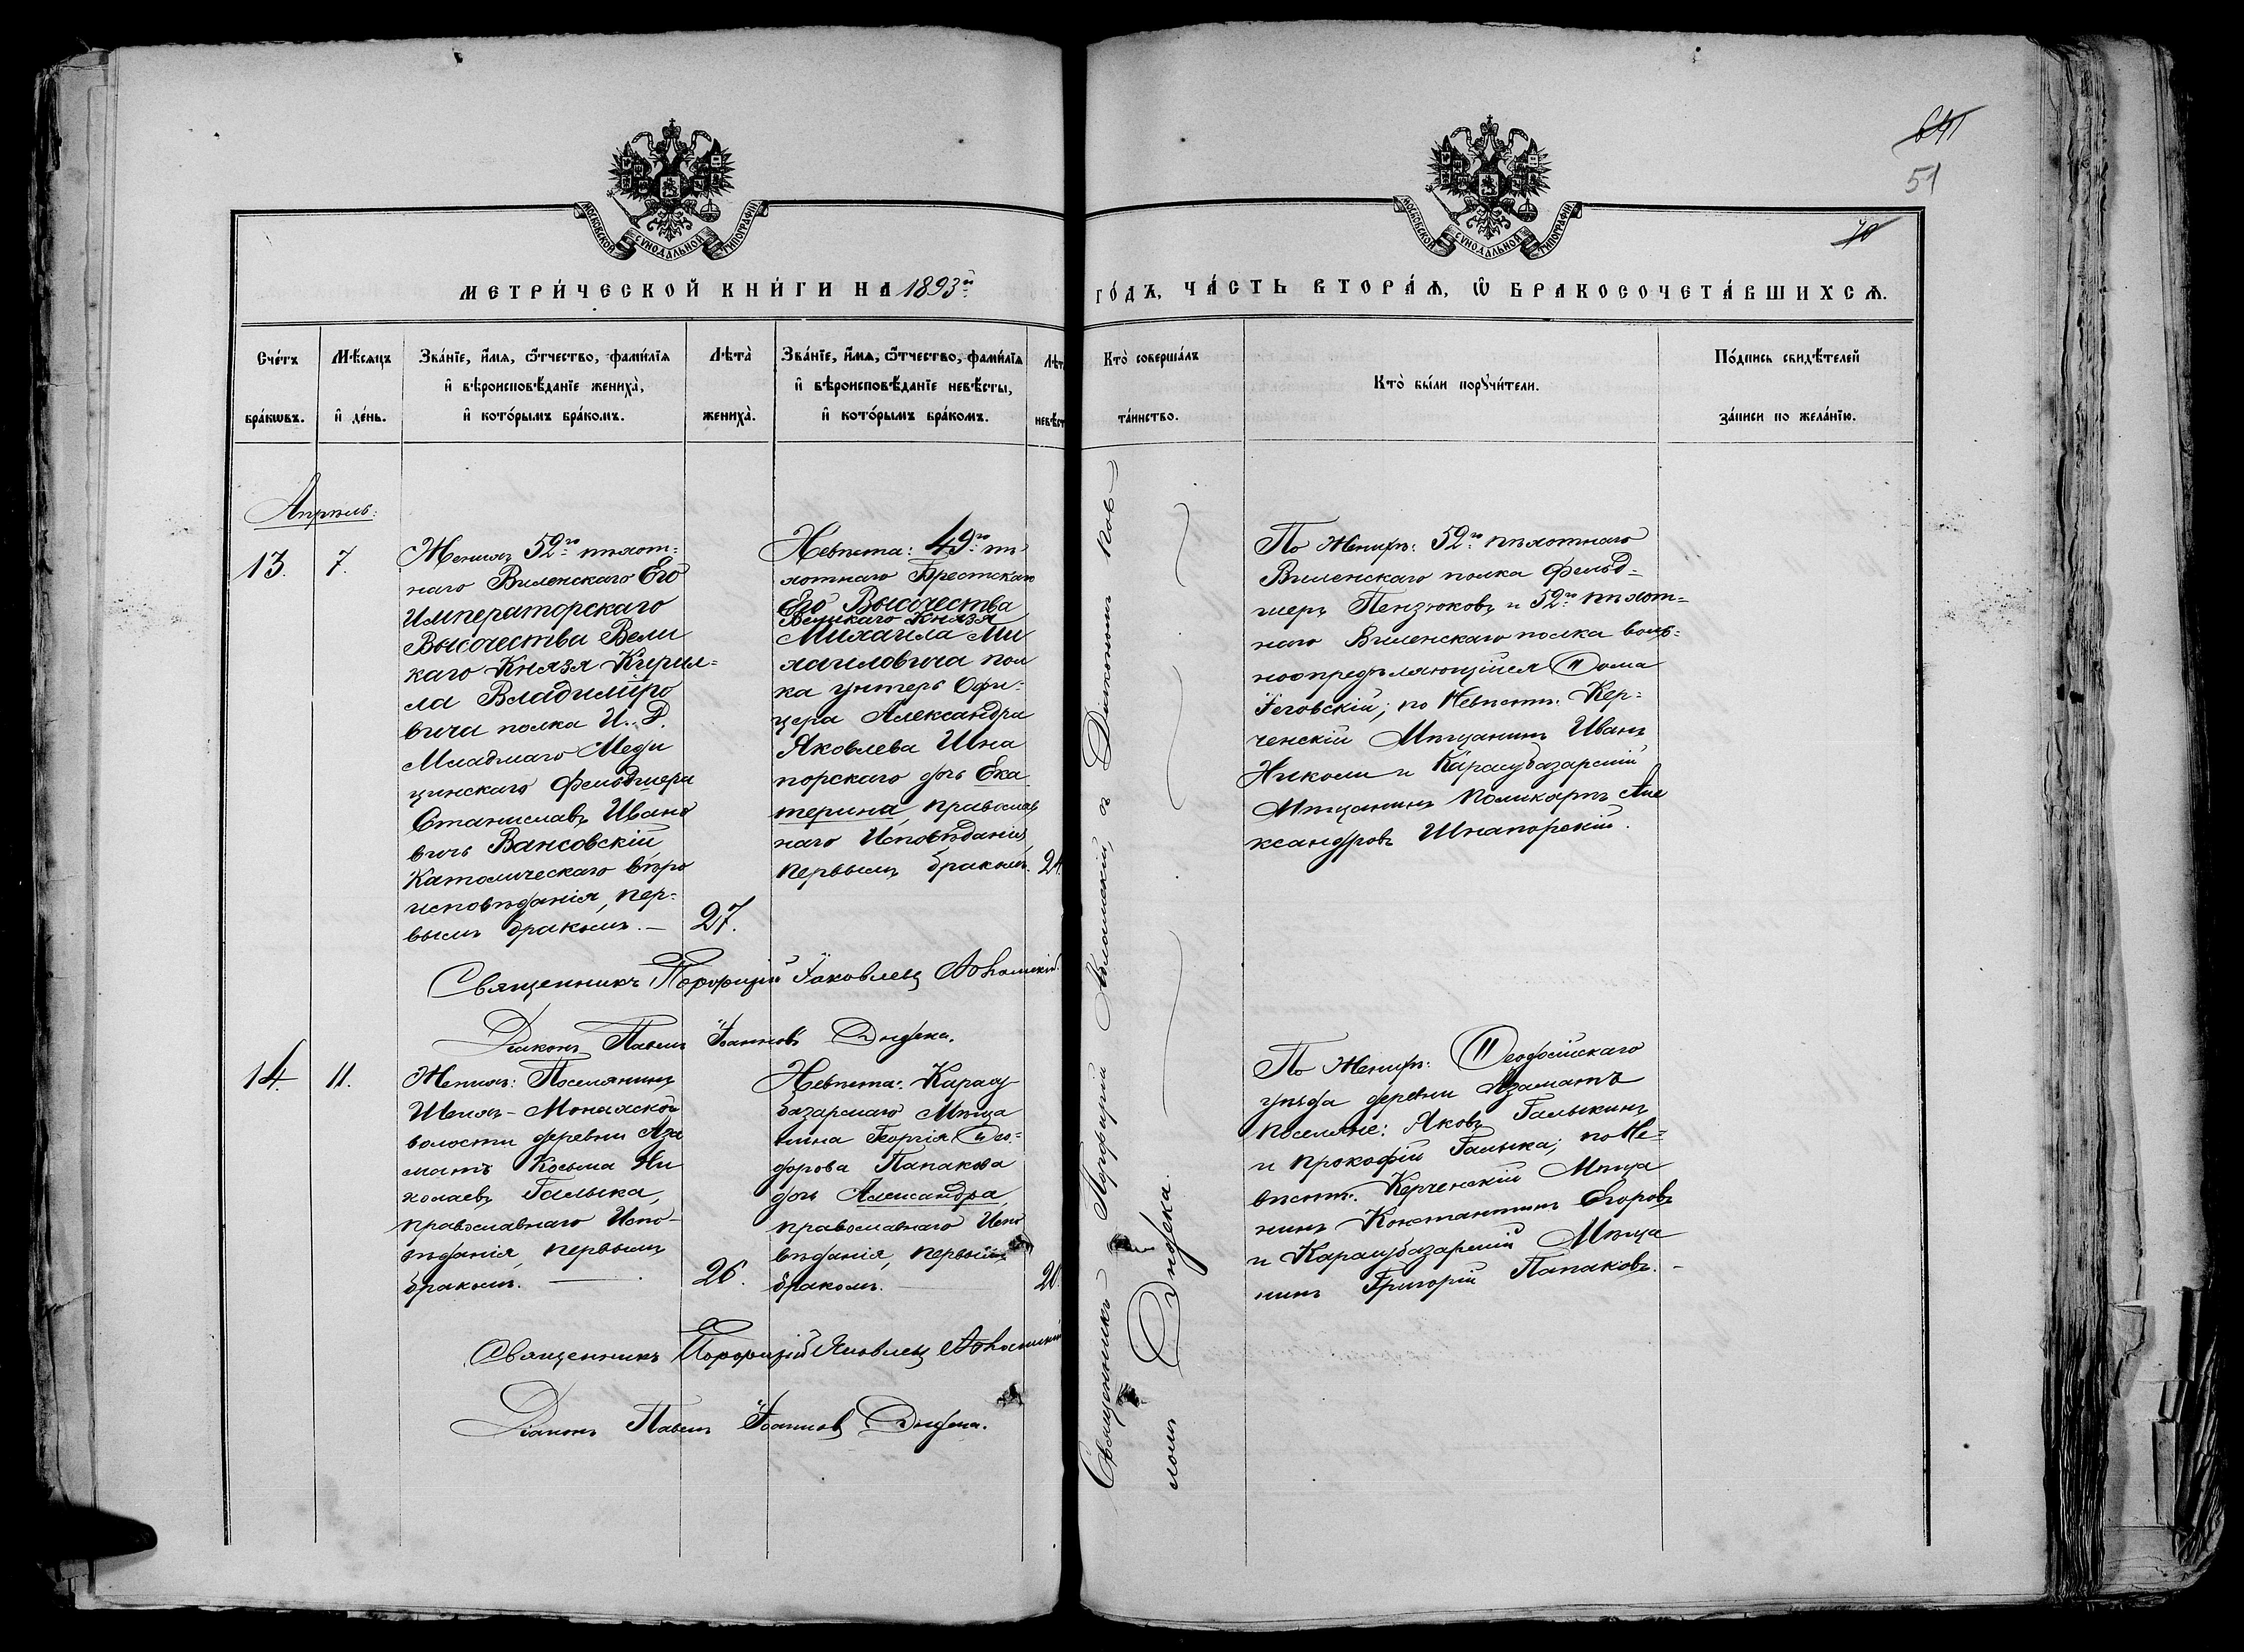 641
51
70
МОСКОВСКОЙ СѴНОДАЛЬНОЙ ТИПОГРАФІИ
МОСКОВСКОЙ СѴНОДАЛЬНОЙ ТИПОГРАФІИ
МЕТРИ́ЧЕСКОЙ КНИ́ГИ НА 1893й
ГО́ДЪ, ЧА́СТЬ ВТОРА́Ѧ, Ѽ БРАКОСОЧЕТА́ВШИХСѦ.
Сче́тъ бра́кѡвъ.
Мѣ́сяцъ и҆ де́нь.
Зва́нїе, и҆́мя, ѻ҆́тчество, фами́лїя
и҆ вѣроисповѣ́данїе жениха̀,
и҆ кото́рымъ бра́комъ.
Лѣта̀ жениха̀.
Зва́нїе, и҆́мя, ѻ҆́тчество, фами́лїя
и҆ вѣроисповѣ́данїе невѣ́сты,
и҆ кото́рымъ бра́комъ.
Лѣт невѣст
Кто̀ соверша́лъ
та́инство.
Кто̀ бы́ли порꙋчи́тели.
По́дпись свидѣ́телей
за́писи по жела́нїю.
Апрѣль.
13.
7.
Женихъ 52го пѣхот=
наго Виленскаго Его
Императорскаго
Высочества Вели
каго Князя Кирил=
ла Владиміро
вича полка И. Д.
Младшаго Меди
цинскаго Фельдшера
Станиславъ Ивано
вичъ Вансовскій
Католическаго вѣро
исповѣданія, пер=
вымъ бракомъ.—
27.
Невѣста: 49го пѣ
хотнаго Брестскаго
Его Высочества
Великаго Князя
Михаила Ми
хаиловича пол
ка унтеръ Офи=
цера Александра
Яковлева Шна
порскаго дочь Ека
терина, православ
наго Исповѣданія,
первымъ бракомъ.
24.
Священникъ Порфирій Іаковлевъ
Діаконъ Павелъ Іоанновъ Дидека.
Священникъ Порфирій и Діакономъ Пав=
ломъ Дидека.
По Женихѣ: 52го пѣхотнаго
Виленскаго полка Фельд=
шеръ Пензюковъ и 52го пѣхот=
наго Виленскаго полка воль=
ноопредѣляющійся Ѳома
Геговскій; по Невѣстѣ: Кер=
ченскій Мѣщанинъ Иванъ
Николи и Карасубазарскій
Мѣщанинъ Поликарпъ Але
ксандровъ Шнапорскій.
14.
11.
Женихъ: Поселянинъ
Шейхъ-Монахской
волости деревни Аза
матъ Косьма Ни
колаевъ Галыка,
православнаго Испо-
вѣданія, первымъ
бракомъ. —
26.
Невѣста: Карасу
базарскаго Мѣща
нина Георгія Ѳео=
дорова Папакова
дочь Александра
православнаго Испо
вѣданія, первымъ
бракомъ.
20
По Женихѣ: Ѳеодосійскаго
уѣзда деревни Азаматъ
поселяне: Яковъ Галыкинъ
и Прокофій Галыка; по Не=
вѣстѣ: Керченскій Мѣща
нинъ Константинъ Егоровъ
и Карасубазарскій Мѣща
нинъ Григорій Папаковъ.—
Священникъ Порфирій Яковлевъ
Діаконъ Павелъ Іоанновъ Дидека.